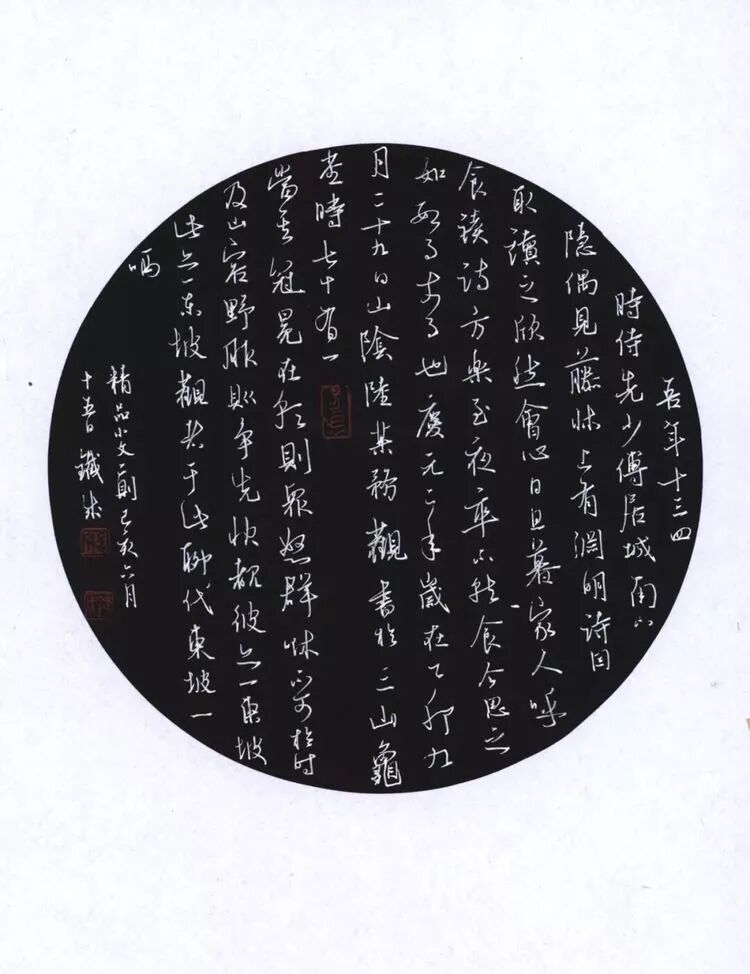 吾年十三四
時侍先少傅居城南小
隱偶見藤床上有淵明詩因
取讀之欣然會心日且暮家人呼
食讀詩方樂至夜卒不就食今思之
如數日前事也慶元二年歲在乙卯九
月二十九日山陰陸某務觀書於三山龜
堂時七十有一
當其冠冕在朝則眾怒群咻不可於時
及山容野服則爭先快覩彼亦一東坡
此亦一东坡觀者于此聊代東坡一
精品小文二則己亥六月
十吾鐵成